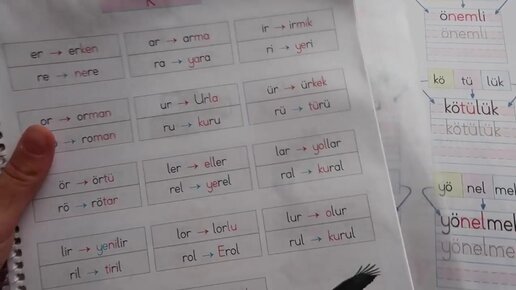 er → erken
ar → arma
ir → irmik
re → nere
ra → yara
ri → yeri
or → orman
ur → Urla
ür → ürkek
→ roman
ru → kuru
rü → türü
ör → örtü
ler → eller
lar → yollar
rö → rötar
rel → yerel
ral → kural
lir → yenilir
lor → lorlu
lur → olur
ril → tiril
rol → Erol
rul → kurul
önemli
önemli
kö tü lük
kötülük
kötülük
yö nel mek
yönelmek
yönelmek